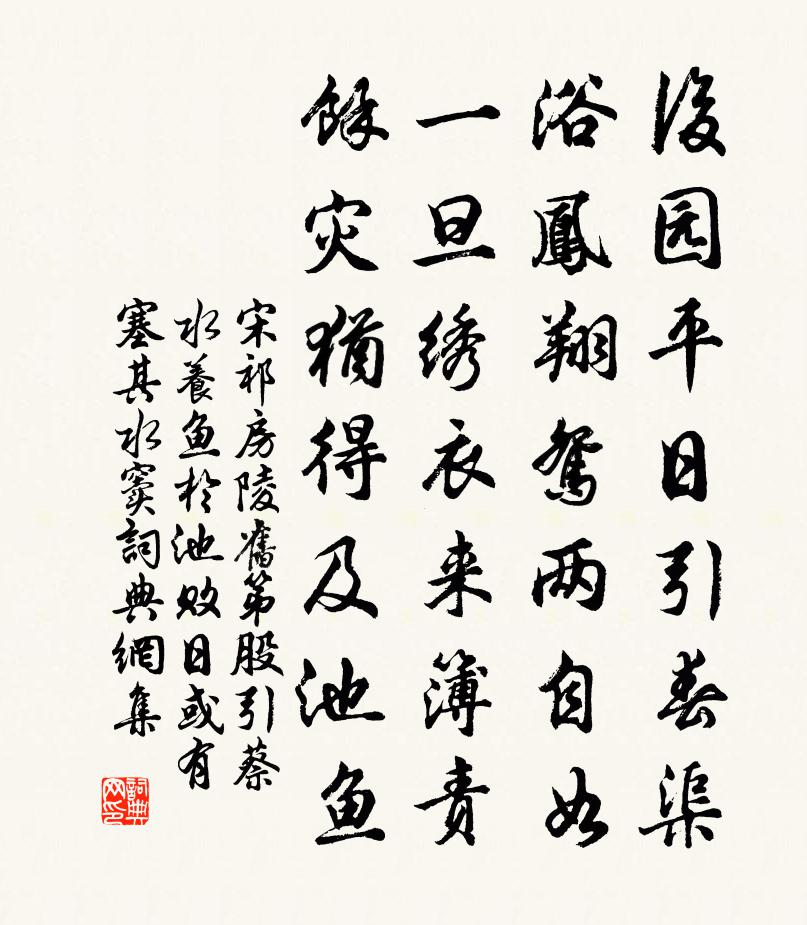 後园平日引春渠
浴鳳翔鴛两自如
一旦绣衣来簿责
餘灾猶得及池鱼
宋祁房陵舊第股引蔡
水養鱼於池敗日或有
塞其水竇詞典網集
詞典网印